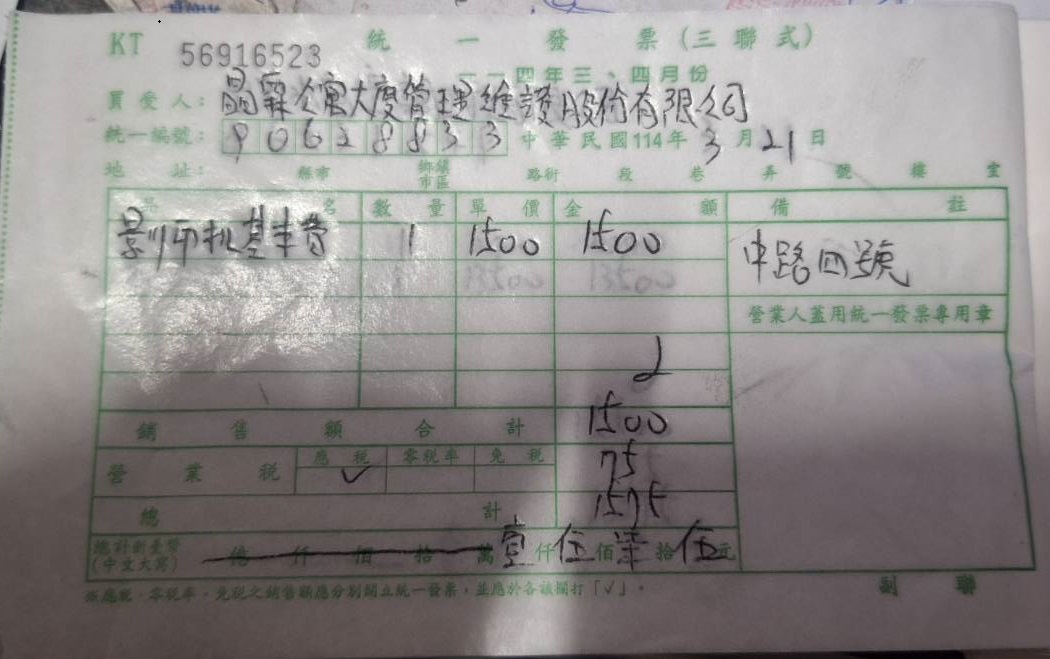 KT 56916523 統一發票(三聯式)
一一四年三、四月份
買受人: 晶霖公寓大廈管理維護股份有限公司
統一編號: 90628833 中華民國114年3月21日
地址: 縣市 鄉鎮市區 路街 段 巷 弄 號 樓 室
品名 數量 單價 金額 備註
影印機基本費 1 1500 1500 中路四號
13500 13500
營業人蓋用統一發票專用章
銷售額合計 1500
營業稅 應稅 ✓ 零稅率 免稅 75
總計 1575
總計新臺幣(中文大寫) 億仟佰拾萬壹仟伍佰柒拾伍元
※應稅、零稅率、免稅之銷售額應分別開立統一發票,並應於各該欄打「✓」。
副聯